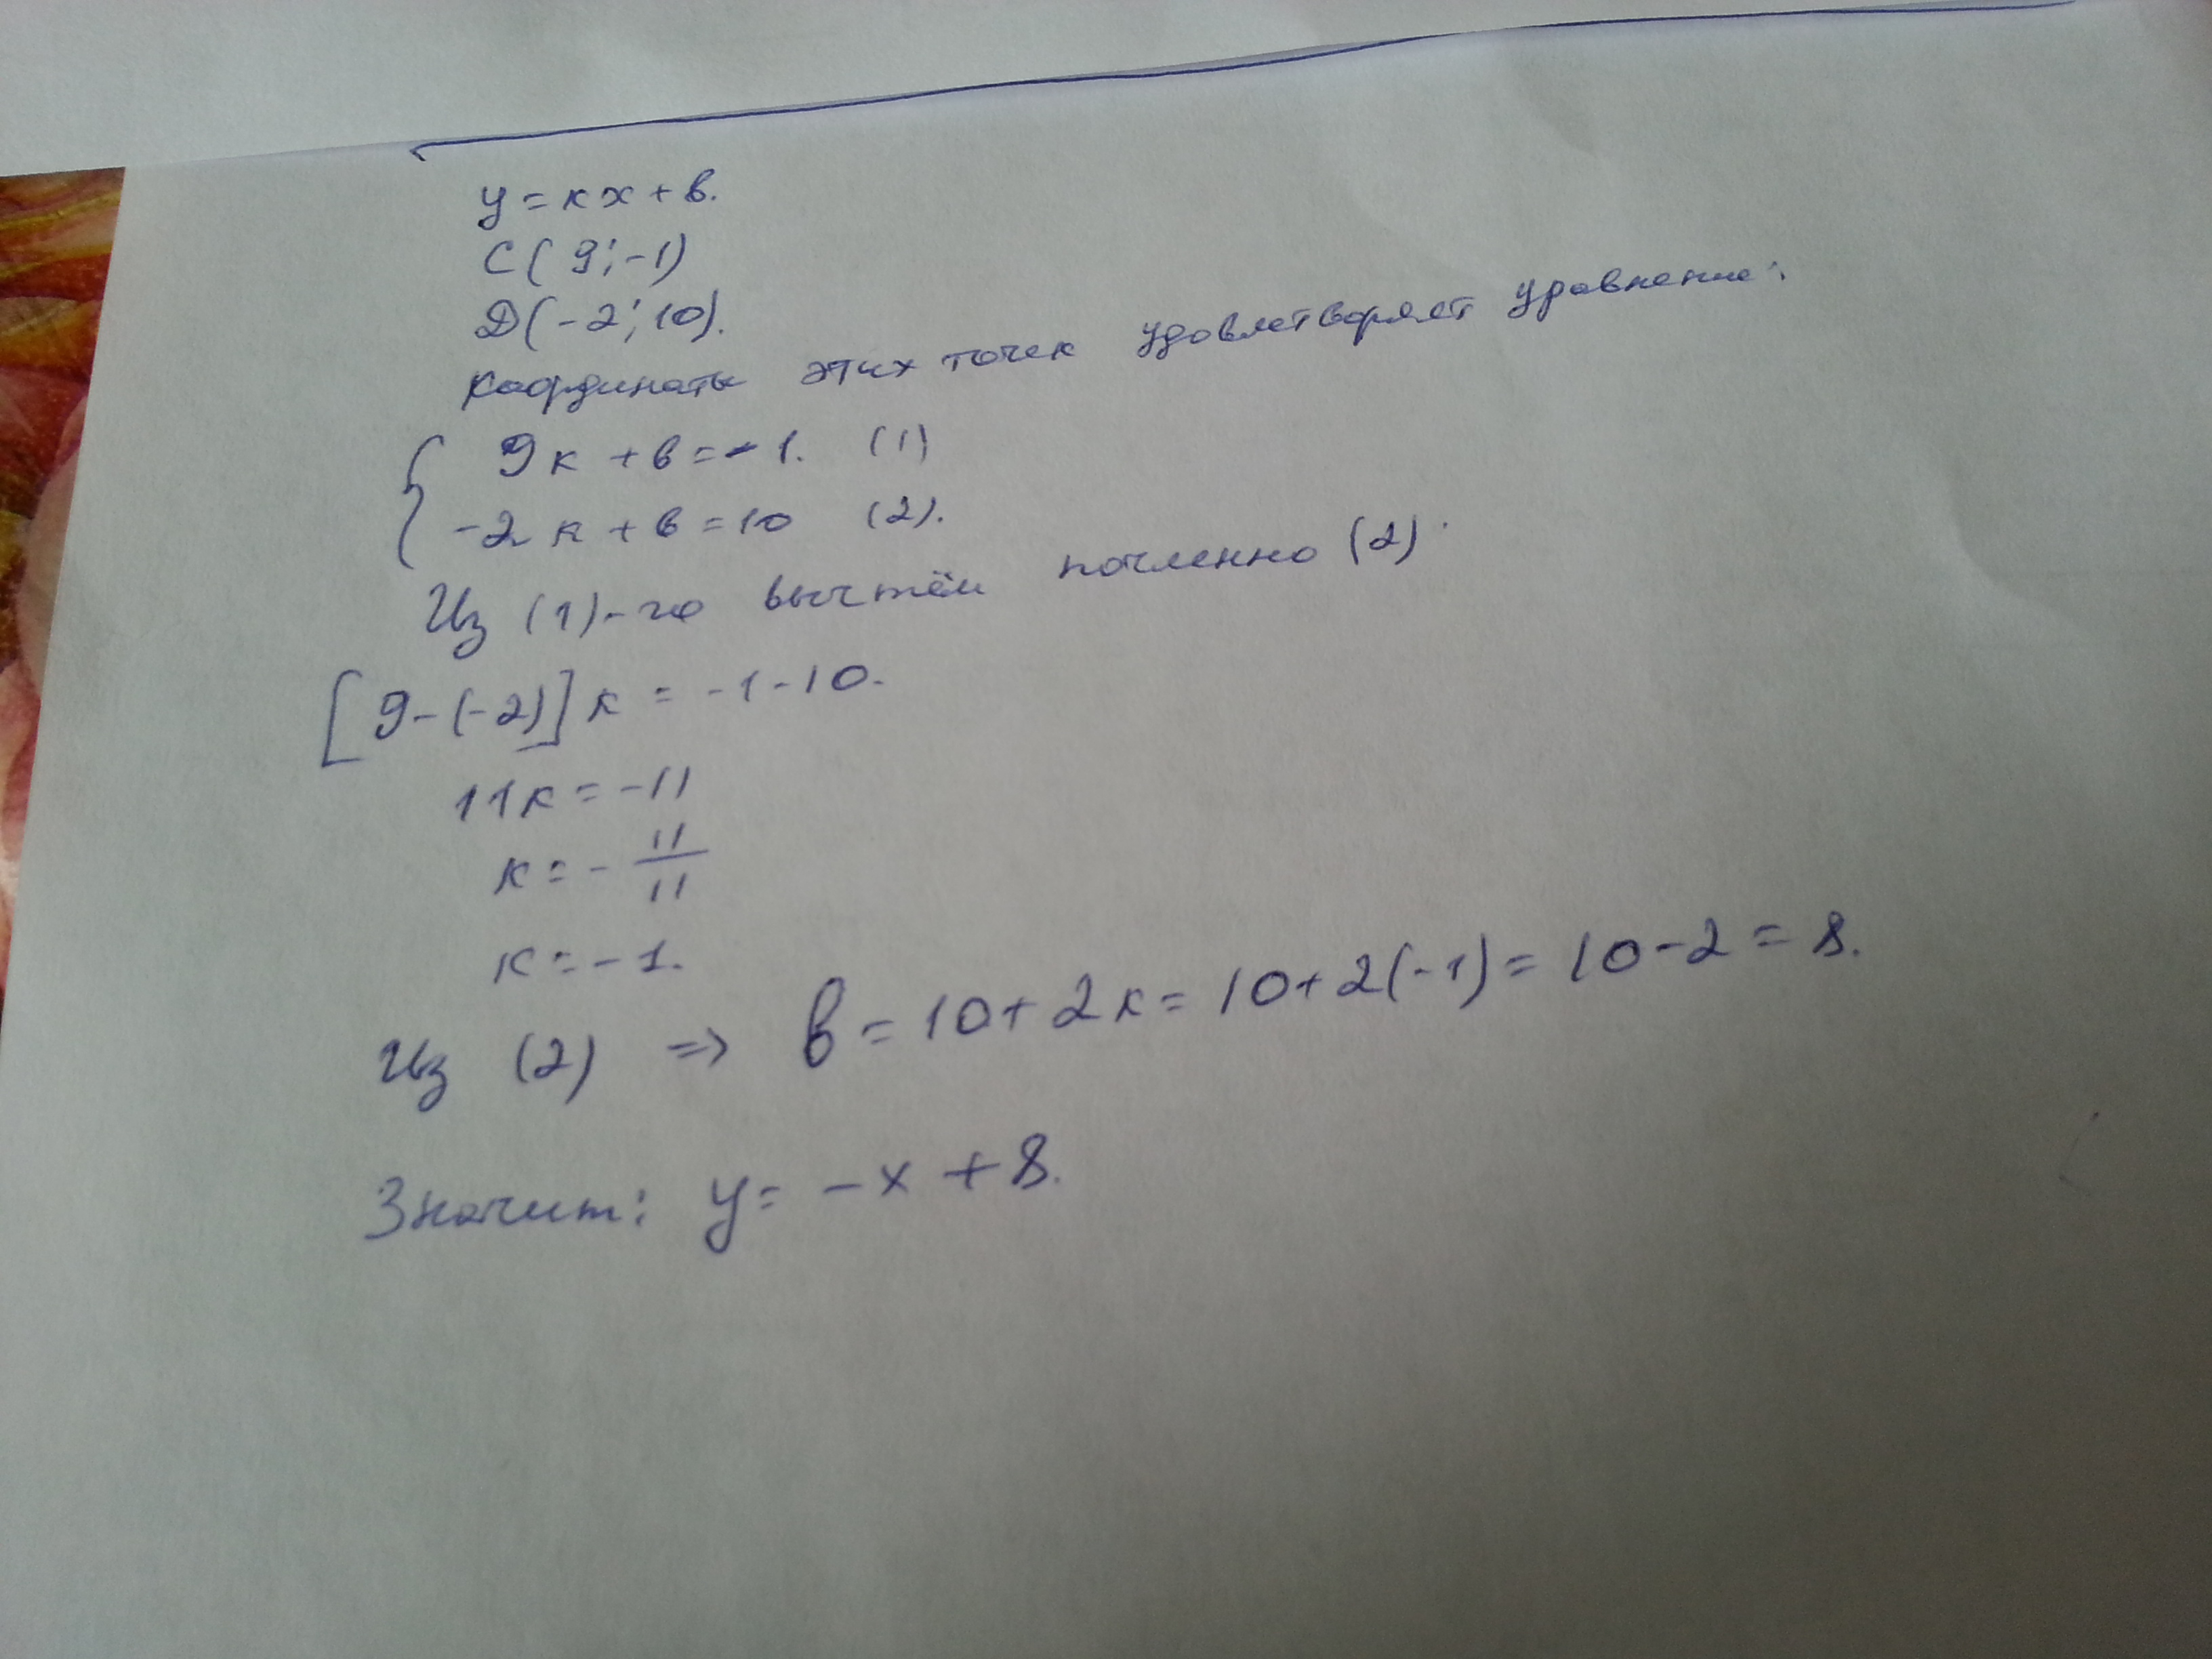 y = кx + в.
C( 9 ; -1)
D( -2 ; 10).
Координаты этих точек удовлетворяет уравнение:
{ 9к + в = -1. (1)
-2к + в = 10 (2).
Из (1)-го вычтём почленно (2).
[9-(-2)]к = -1-10.
11к = -11
к = - 11/11
к = -1.
Из (2) => в = 10 + 2к = 10 + 2(-1) = 10 - 2 = 8.
Значит: y = -x + 8.